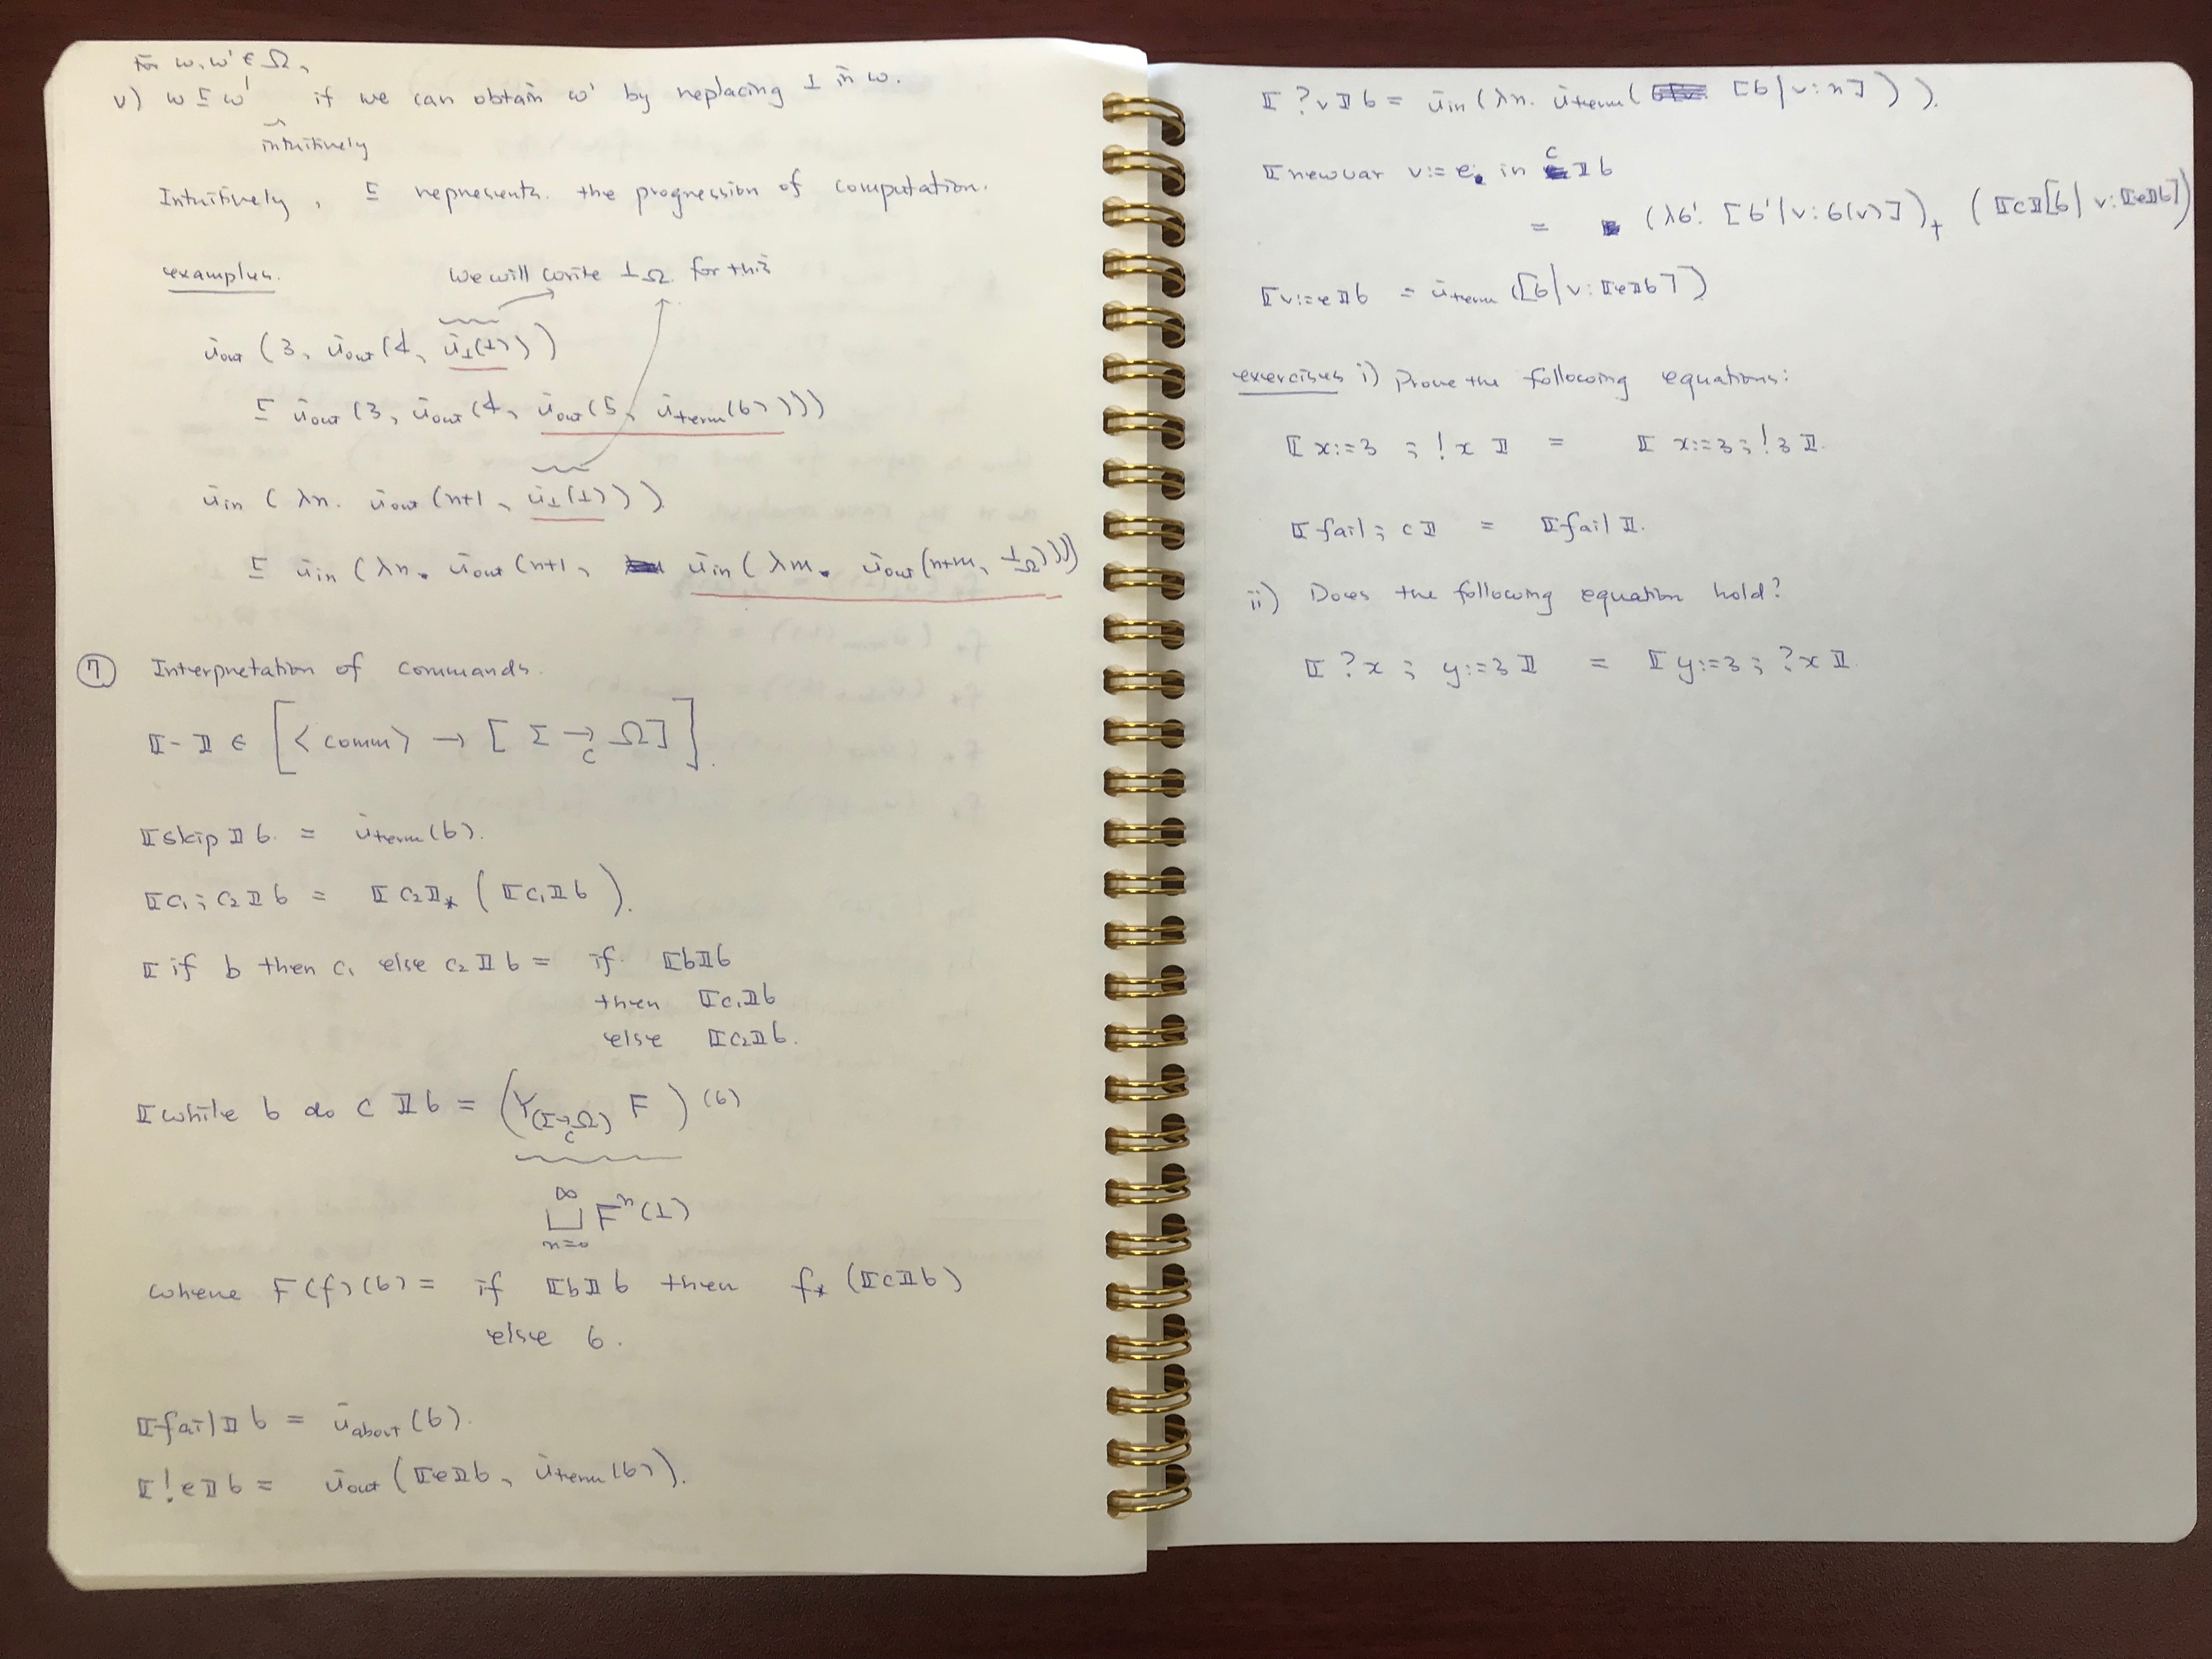 For ω, ω' ∈ Ω,
v) ω ⊑ ω' if we can obtain ω' by replacing ⊥ in ω.
intuitively
Intuitively, ⊑ represents the progression of computation.
examples. We will write ⊥_Ω for this
ῑ_out (3, ῑ_out (4, ῑ_⊥(⊥)))
⊑ ῑ_out (3, ῑ_out (4, ῑ_out (5, ῑ_term (σ))))
ῑ_in (λn. ῑ_out (n+1, ῑ_⊥(⊥))).
⊑ ῑ_in (λn. ῑ_out (n+1, ῑ_in (λm. ῑ_out (n+m, ⊥_Ω))))
⑦ Interpretation of commands.
⟦-⟧ ∈ [<comm> → [Σ →_c Ω]].
⟦skip⟧σ = ῑ_term (σ).
⟦c₁; c₂⟧σ = ⟦c₂⟧_* (⟦c₁⟧σ).
⟦if b then c₁ else c₂⟧σ = if ⟦b⟧σ
then ⟦c₁⟧σ
else ⟦c₂⟧σ.
⟦while b do c⟧σ = (Y_(Σ→_c Ω) F)(σ)
⊔_{n=0}^∞ Fⁿ(⊥)
where F(f)(σ) = if ⟦b⟧σ then f_* (⟦c⟧σ)
else σ.
⟦fail⟧σ = ῑ_abort (σ).
⟦!e⟧σ = ῑ_out (⟦e⟧σ, ῑ_term (σ)).
⟦?v⟧σ = ῑ_in (λn. ῑ_term ([σ|v:n])).
⟦newvar v:=e in c⟧σ
= (λσ'. [σ'|v:σ(v)])_† (⟦c⟧[σ|v:⟦e⟧σ])
⟦v:=e⟧σ = ῑ_term ([σ|v:⟦e⟧σ])
exercises i) Prove the following equations:
⟦x:=3 ; !x⟧ = ⟦x:=3 ; !3⟧.
⟦fail; c⟧ = ⟦fail⟧.
ii) Does the following equation hold?
⟦?x ; y:=3⟧ = ⟦y:=3 ; ?x⟧.